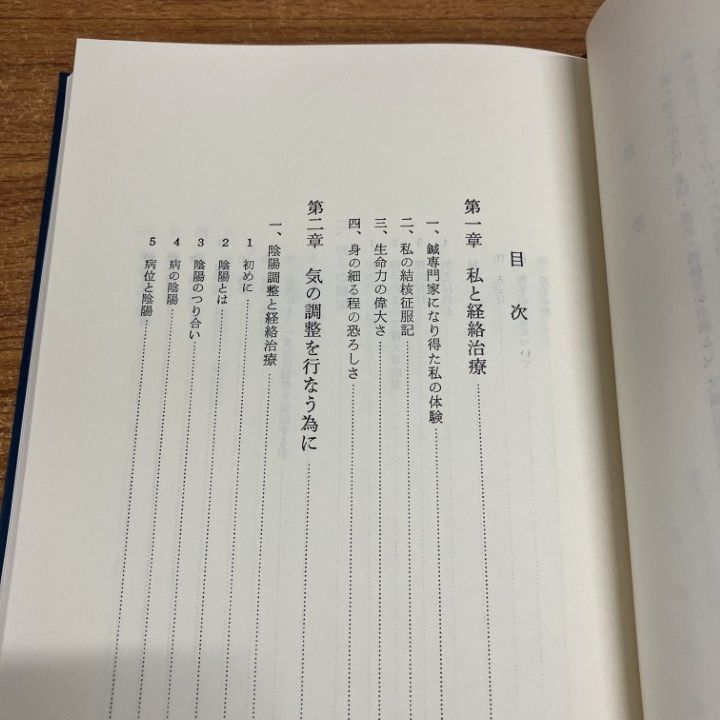 目次
第一章 私と経絡治療
一、鍼専門家になり得た私の体験
二、私の結核征服記
三、生命力の偉大さ
四、身の細る程の恐ろしさ
第二章 気の調整を行なう為に
一、陰陽調整と経絡治療
1 初めに
2 陰陽とは
3 陰陽のつり合い
4 病の陰陽
5 病位と陰陽